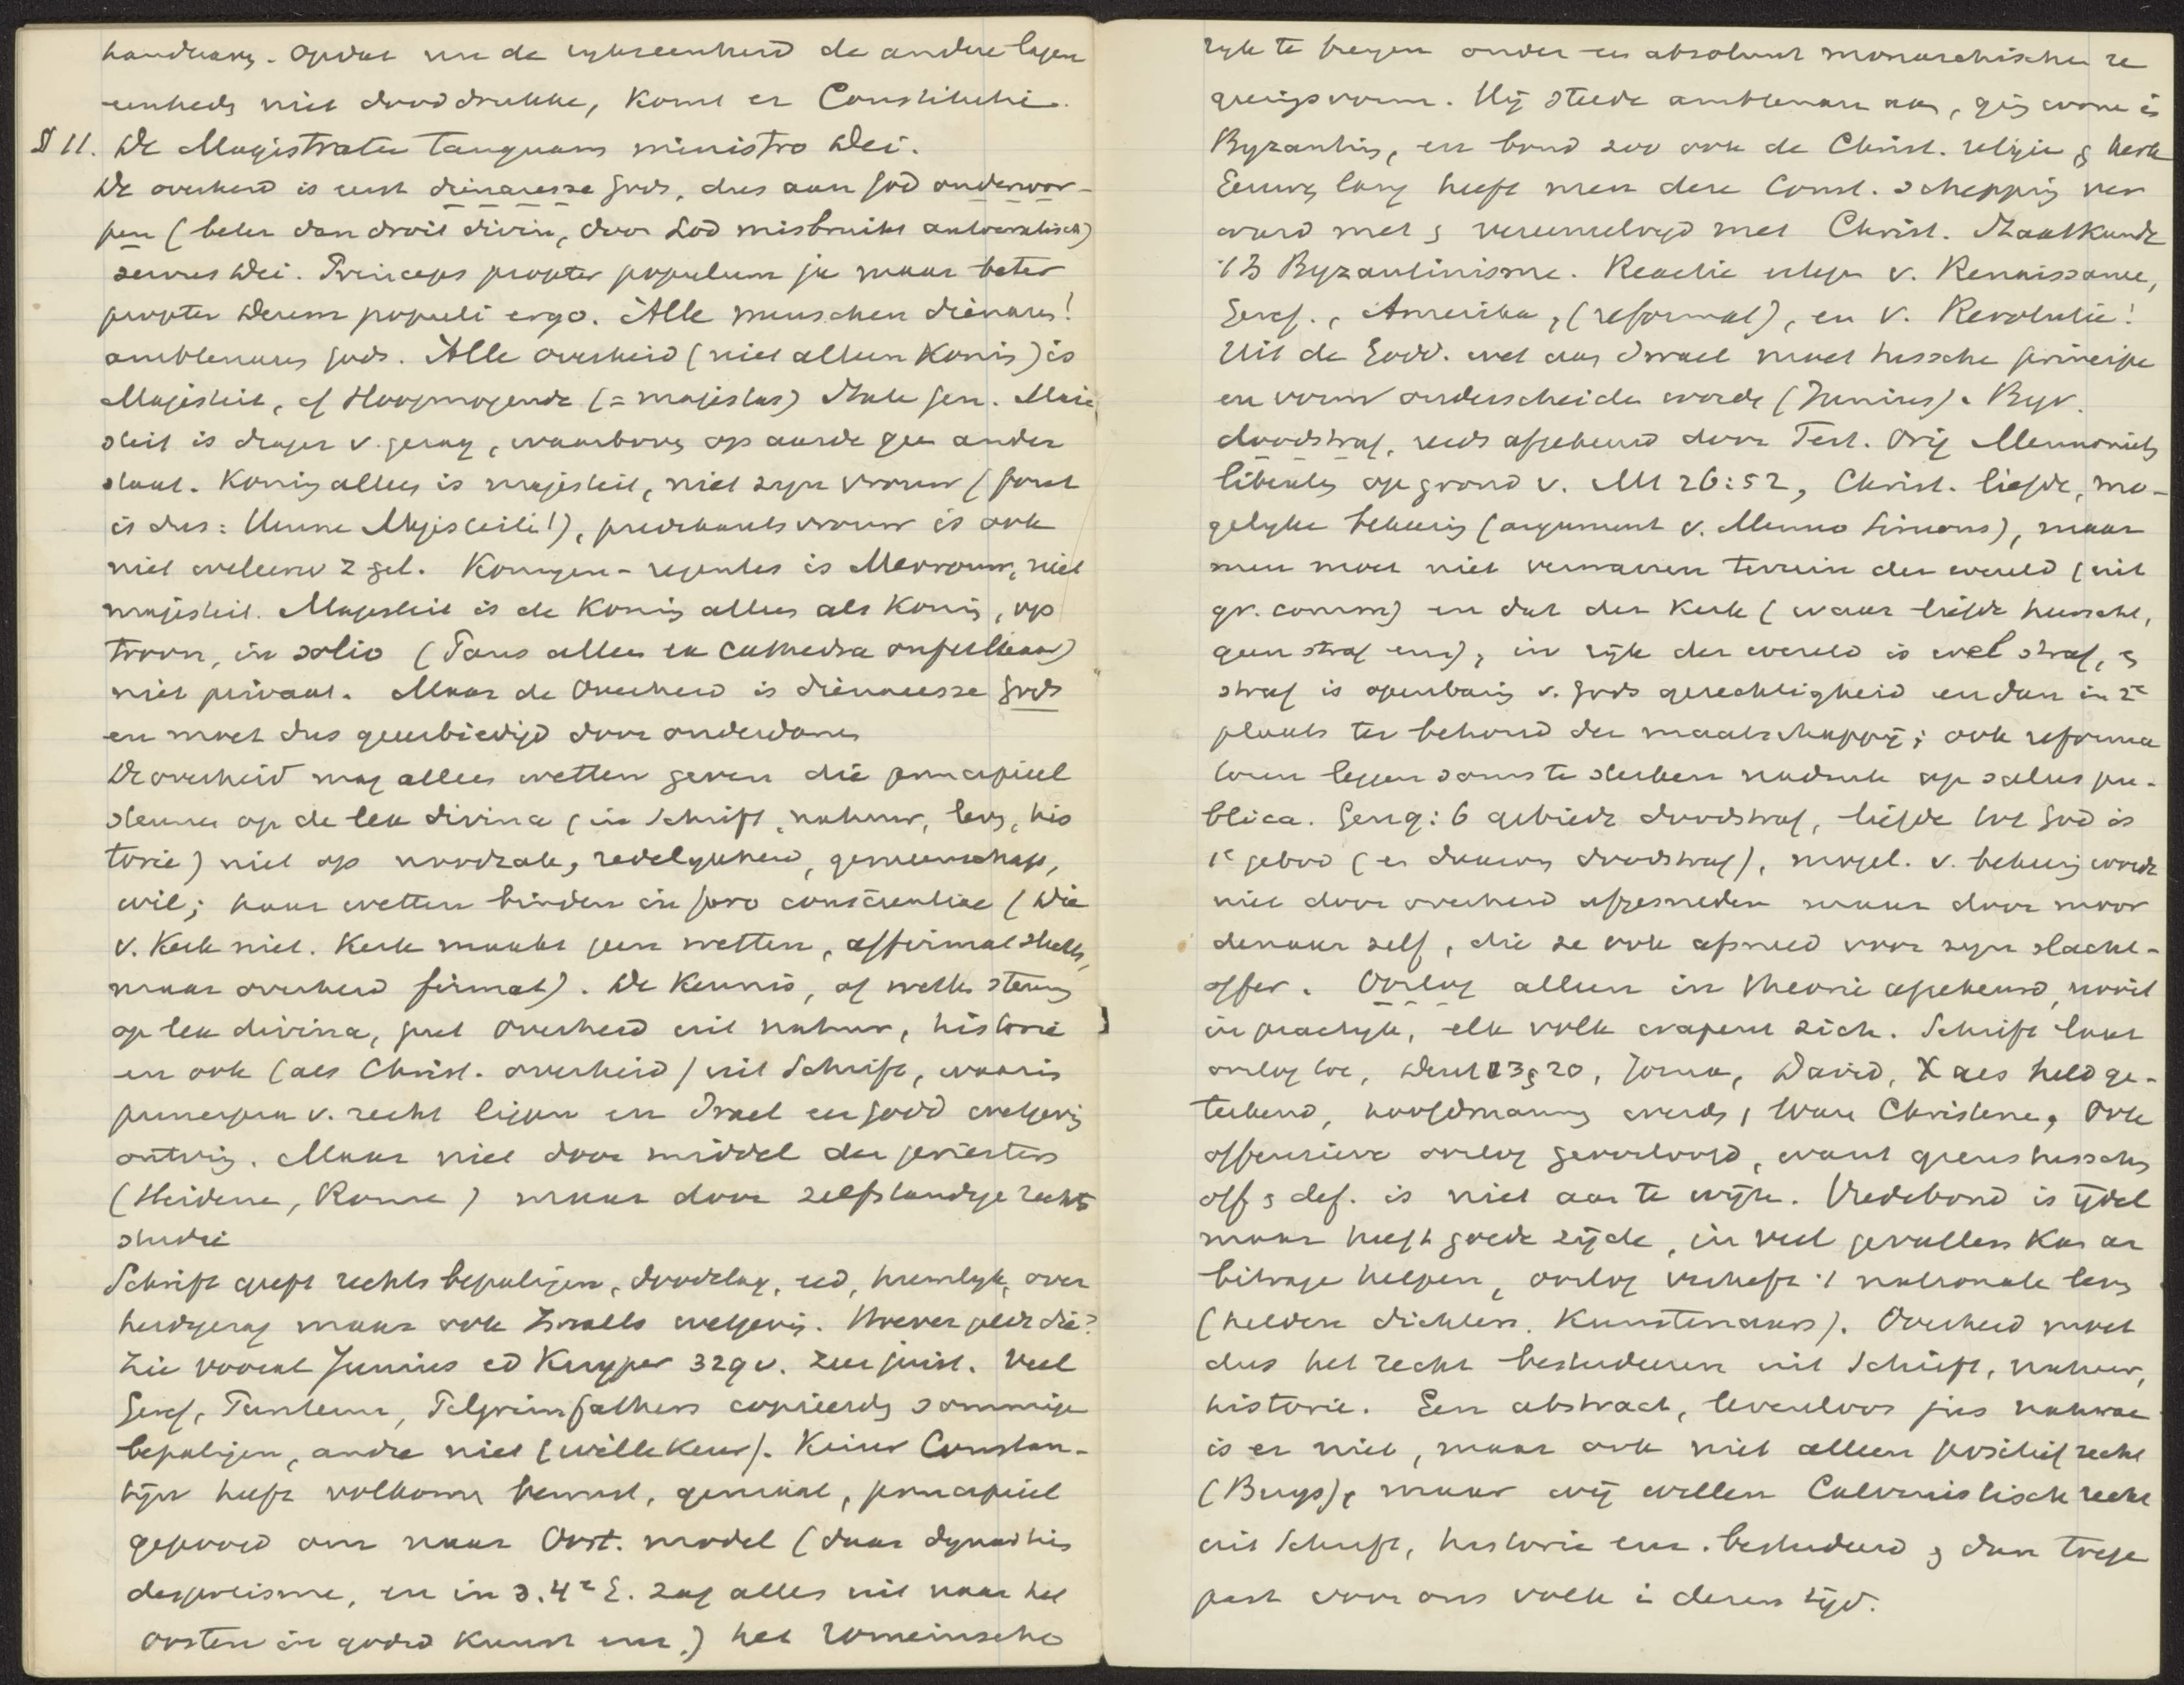 handhaving. Opdat nu de rykseenheid de andere lagere
eenheds niet dooddrukke, komt er Constitutie.
§ 11. De Magistratu tanquam ministro Dei.
De overheid is eerst dienaresse Gods, dus aan God onderwor-
pen (beter dan droit divin, door Lod misbruikt autocratisch)
servus Dei. Princeps propter populum ja maar beter
propter Deum populi ergo. Alle menschen dienaars!
amblenaars Gods. Alle overheid (niet alleen Koning) is
Majesteit, of Hoogmogende (= majestas) State Gen. Maje
steit is drager v. gezag, waarboven op aarde geen ander
staat. Koning alleen is majesteit, niet zyn vrouw (fout
is dus: Hunne Majesteiten!), predikantsvrouw is ook
niet weleerw z gel. Koningen-regentes is Mevrouw, niet
majesteit. Majesteit is de Koning alleen als Koning, op
troon, in solio (Paus alleen ex cathedra onfeilbaar)
niet privaat. Maar de Overheid is dienaresse Gods
en moet dus geeerbiedigd door onderdanen
De overheid mag alleen wetten geven die principieel
steunen op de lex divina (in Schrift, natuur, leven, his
torie) niet op noodzake, redelykheid, gemeenschap,
wil; haar wetten binden in foro conscientiae (Die
v. Kerk niet. Kerk maakt geen wetten, affirmat slechts,
maar overheid firmat). De Kennis, of welke steunen
op lex divina, put Overheid uit natuur, historie
en ook (als Christ. overheid) uit Schrift, waarin
principia v. recht liggen en Israel een godd wetgeving
ontving. Maar niet door middel der priesters
(Heidenen, Rome) maar door zelfstandige rechts
studie
Schrift geeft rechtsbepalingen, doodslag, eed, huwelyk, over
heidsgezag maar ook Israels wetgeving. Hoever geldt die?
Zie vooral Junius ed Kuyper 329 v. zeer juist. Veel
Geref, Puriteinen, Pelgrimfathers copieerden sommige
bepalingen, andre niet (willekeur). Keizer Constan-
tijn heeft volkomen bewust, geniaal, principieel
gepoogd om naar Oost. model (daar dynastie
despotisme, en in 3. 4e E. zag alles uit naar het
oosten in godsd kunst enz.) het Romeinsche
ryk te brengen onder een absoluut monarchischen re
geringsvorm. Hij stelde amblenaren aan, ging wonen in
Byzantium, en bond zoo ook de Christ. religie & kerk
Eeuwen lang heeft men deze Const. schepping ver
ward met & vereenzelvigd met Christ. Staatkunde
't is Byzantinisme. Reactie ertegen v. Renaissance,
Geref., Amerika, (reformat), en v. Revolutie!
Uit de Godd. wet aan Israel moet tusschen principe
en vorm onderscheiden worden (Junius). Byv.
doodstraf, reeds afgekeurd door Tert. Orig Mennonieten
liberalen op grond v. Mt 26:52, Christ. liefde, mo-
gelyke bekeering (argument v. Menno Simons), maar
men moet niet verwarren terrein der wereld (uit
gr. comm) en dat der Kerk (waar liefde heerscht,
geen straf enz), in rijk der wereld is wel straf, &
straf is openbaring v. Gods gerechtigheid en dan in 2e
plaats ter behoud der maatschappij; ook reforma
toren leggen soms te sterken nadruk op salus pu-
blica. Gen 9:6 gebiedt doodstraf, liefde tot God is
1e gebod (en daarom doodstraf), mogel. v. bekeering wordt
niet door overheid afgesneden maar door moor
denaar zelf, die ze ook afsneed voor zyn slacht-
offer. Oorlog alleen in theorie afgekeurd, nooit
in practyk, elk volk wapent zich. Schrift laat
oorlog toe, Deut 23 & 20, Jozua, David, X als held ge-
tekend, hoofdmannen werden ware Christenen, Ook
offensieve oorlog geoorloofd, want grens tusschen
off & def. is niet aan te wijzen. Vredebond is ijdel
maar heeft goede zijde, in veel gevallen kan ar
bitrage helpen, oorlog verheft 't nationale leven
(helden dichters. Kunstenaars). Overheid moet
dus het recht bestudeeren uit Schrift, natuur,
historie. Een abstract, levenloos jus naturae
is er niet, maar ook niet alleen positief recht
(Buys), maar wij willen Calvinistisch recht
uit Schrift, historie enz. bestudeerd & dan toege
past voor ons volk in dezen tijd.